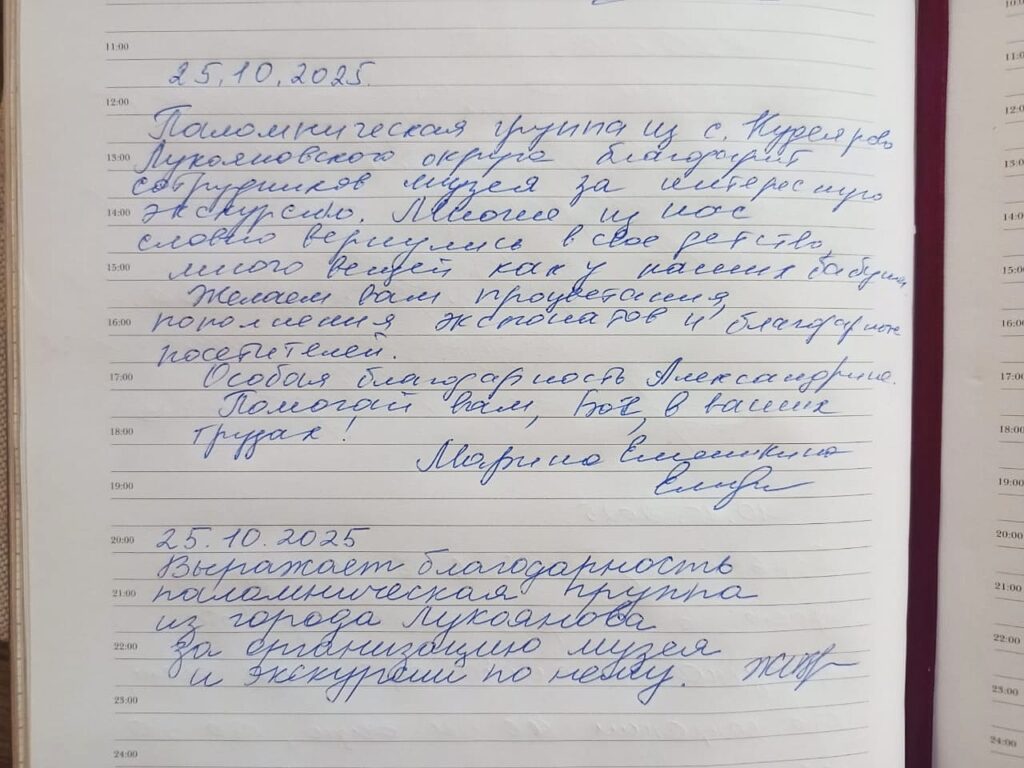 11:00
25.10.2025.
12:00
Паломническая группа из с. Кудеярово
13:00
Лукояновского округа благодарит
сотрудников музея за интересную
14:00
экскурсию. Многие из нас
словно вернулись в свое детство,
15:00
много вещей как у наших бабушек
Желаем вам процветания,
16:00
пополнения экспонатов и благодарных
посетителей.
17:00
Особая благодарность Александрине.
Помогай вам, Бог, в ваших
18:00
трудах!
Марина
19:00
20:00
25.10.2025
Выражает благодарность
21:00
паломническая группа
из города Лукоянова
22:00
за организацию музея
и экскурсии по нему.
23:00
24:00
10:00
11:00
12:00
13:00
14:00
15:00
16:00
17:00
18:00
19:00
20:00
21:00
22:00
23:00
24:00